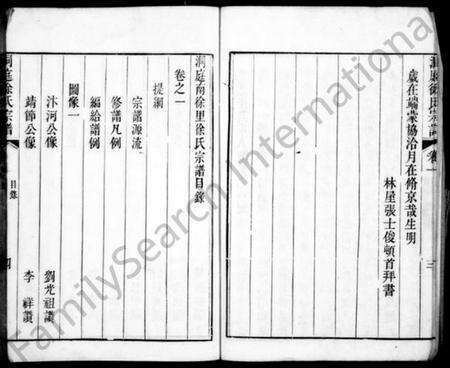 洞庭徐氏宗譜 卷一 三
歲在端蒙協洽月在脩京哉生明
林屋張士俊頓首拜書
洞庭南徐里徐氏宗譜目錄
卷之一
提綱
宗譜源流
修譜凡例
編給譜例
圖像一
汴河公像 劉光祖讚
靖節公像 李祥讚
洞庭徐氏宗譜 目錄 四
FamilySearch International